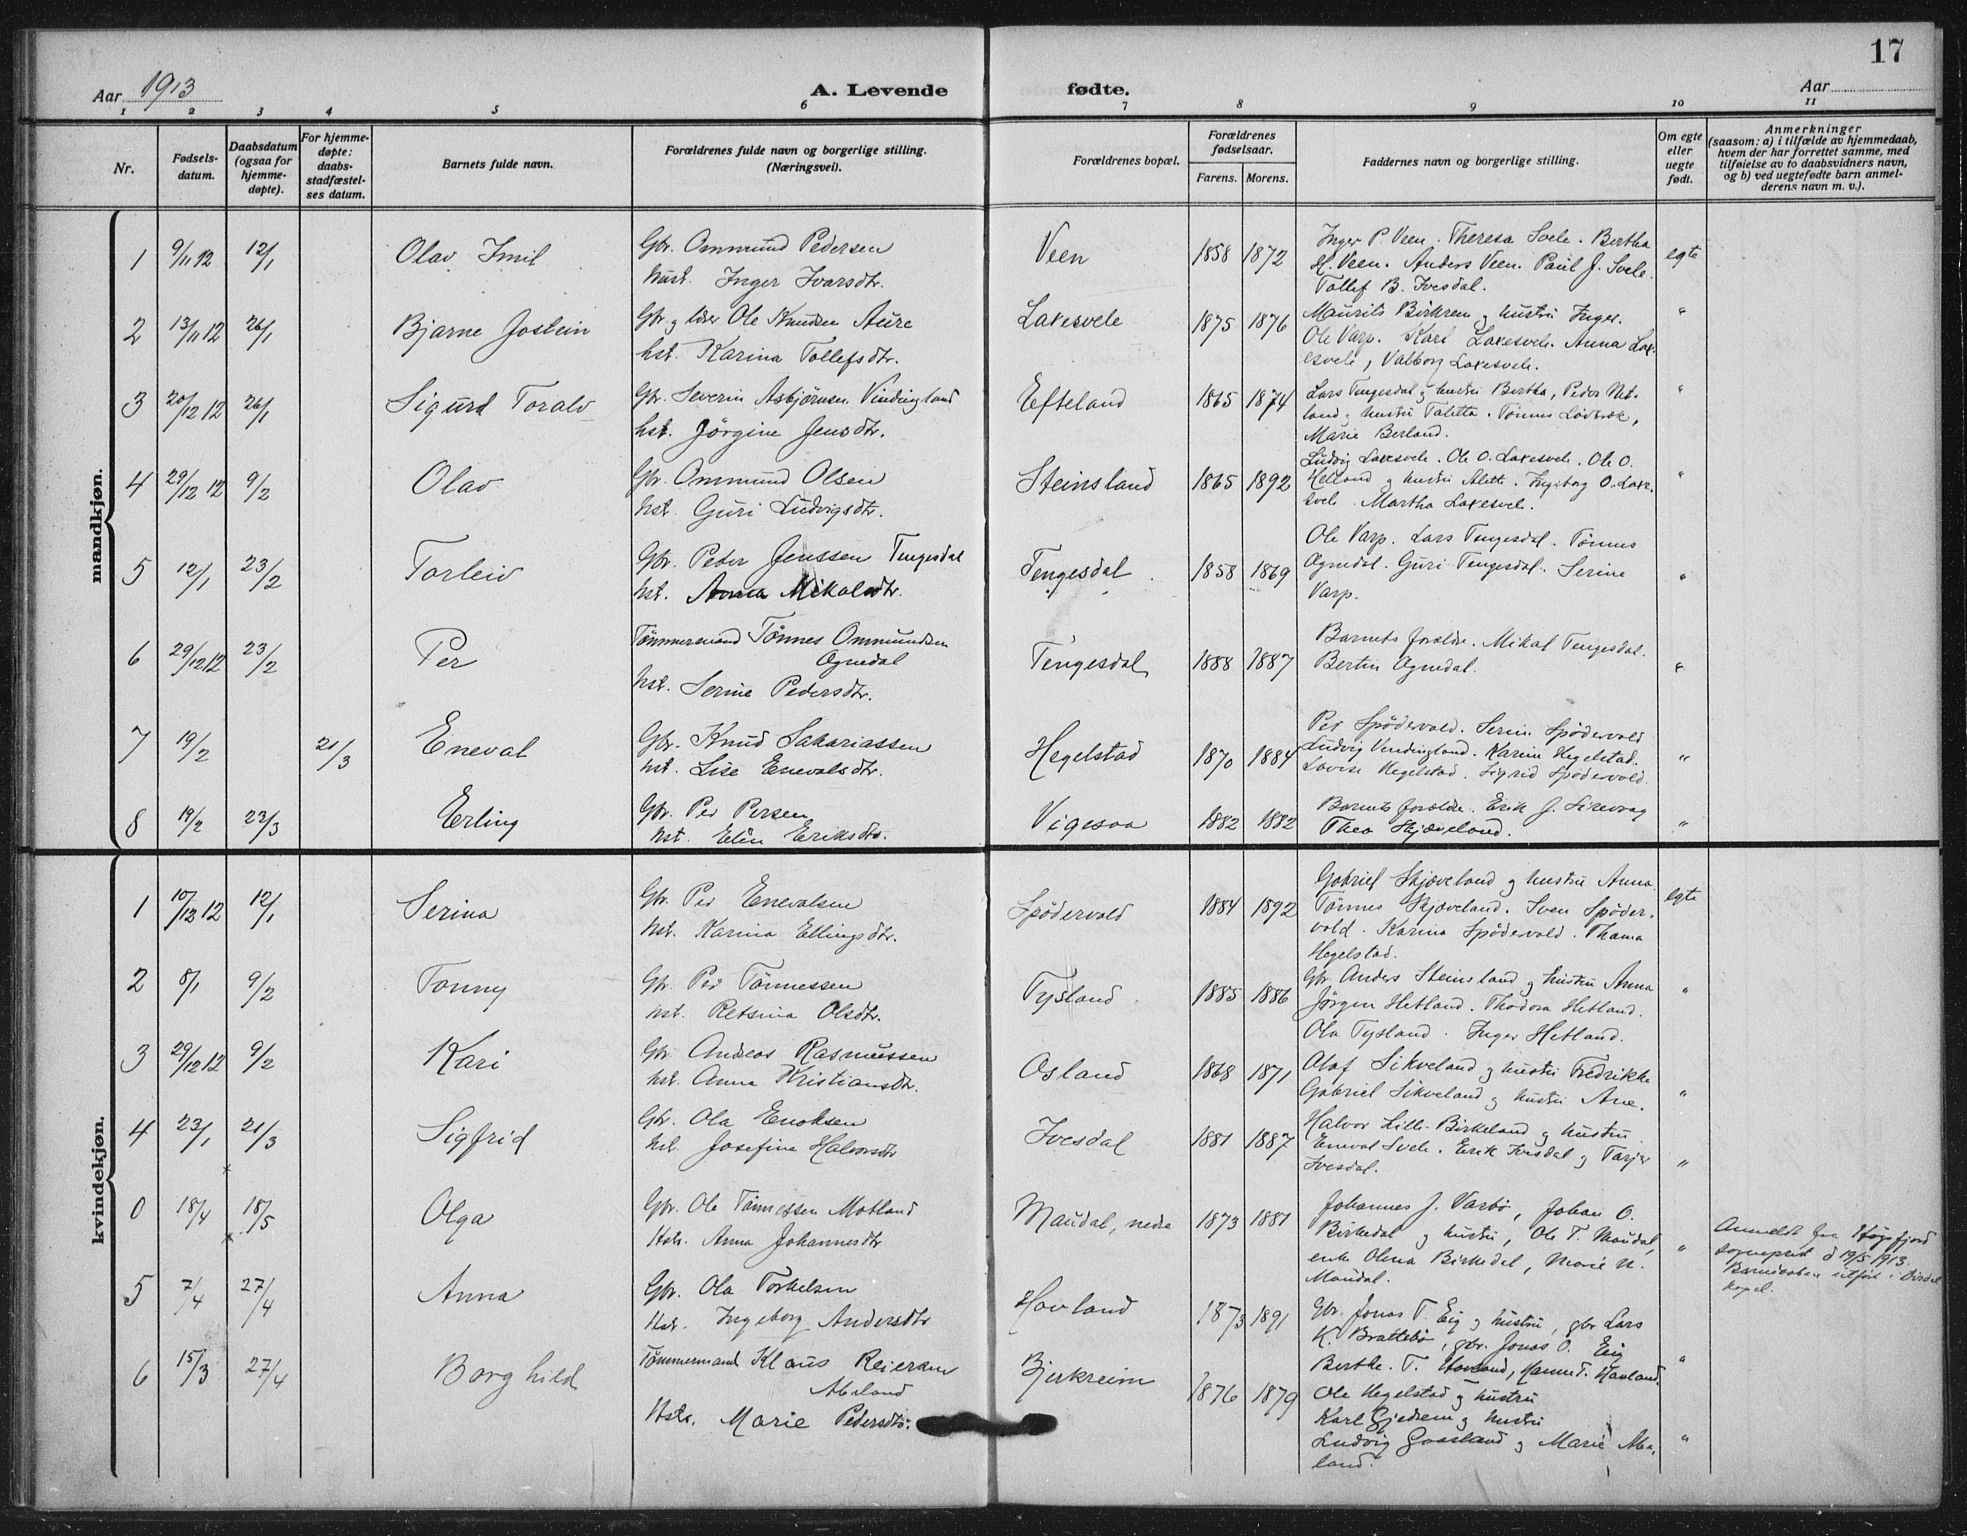 17
Aar 1913
A. Levende fødte.
Aar
1 2 3 4 5 6 7 8 9 10 11
Nr.
Fødsels-
datum.
Daabsdatum
(ogsaa for
hjemme-
døpte).
For hjemme-
døpte:
daabs-
stadfæstel-
ses datum.
Barnets fulde navn.
Forældrenes fulde navn og borgerlige stilling.
(Næringsvei).
Forældrenes bopæl.
Forældrenes
fødselsaar.
Farens. Morens.
Faddernes navn og borgerlige stilling.
Om egte
eller
uegte
født.
Anmerkninger
(saasom: a) i tilfælde av hjemmedaab,
hvem der har forrettet samme, med
tilføielse av to daabsvidners navn,
og b) ved uegtefødte barn anmel-
derens navn m. v.).
mandkjøn.
1 9/11 12 12/1 Olav Imil
Gbr. Ommund Pedersen
hust. Inger Ivarsdtr.
Veen 1858 1872
Inger P. Veen. Theresa Svele. Bertha
H. Veen. Anders Veen. Paul J. Svele.
Tollef B. Ivesdal.
egte
2 13/11 12 26/1 Bjarne Jostein
Gbr. og lærer Ole Knudsen Aure
hst. Karina Tollefsdtr.
Laksesvele 1875 1876
Maurits Birkrem og hustri Inger.
Ole Varp. Karl Laksesvele. Anna Lak-
esvele, Valborg Laksesvele.
"
3 20/12 12 26/1 Sigurd Toralv
Gbr. Severin Asbjørnsen Vindingland
hst. Jørgine Jensdtr.
Efteland 1865 1874
Lars Tengesdal og hustri Bertha, Peder Net-
land og hustri Taletta. Tønnes
Marie Berland.
"
4 29/12 12 9/2 Olav
Gbr. Ommund Olsen
hst. Guri Ludvigsdtr.
Steinsland 1865 1892
Ludvig Laksesvele. Ole O. Laksesvele. Ole O.
Helland og hustri Alette. Ingeborg O. Lakse-
svele. Martha Laksesvele.
"
5 12/1 23/2 Torleiv
Gbr. Peder Jenssen Tengesdal
hst. Anna Mikalsdtr.
Tengesdal 1858 1869
Ole Varp. Lars Tengesdal. Tønnes
Ognedal. Guri Tengesdal. Serine
Varp.
"
6 29/12 12 23/2 Per
Tømmermand Tønnes Ommundsen
Ognedal
hst. Serine Pedersdtr.
Tengesdal 1888 1887
Barnets forældre. Mikal Tengesdal.
Bertin Ognedal.
"
7 19/2 21/3 Eneval
Gbr. Knud Sakariassen
hst. Lise Enevalsdtr.
Hegelstad 1870 1884
Per Spødervold. Serin Spødervold
Ludvig Vindingland. Karine Hegelstad.
Lovise Hegelstad. Sigrid Spødervold.
"
8 19/2 23/3 Erling
Gbr. Per Persen
hst. Elin Eriksdtr.
Vigesaa 1882 1882
Barnets forældre. Erik J. Sirevaag
Thea Skjæveland.
"
kvindekjøn.
1 10/12 12 12/1 Serina
Gbr. Per Enevalsen
hst. Karina Ellingsdtr.
Spødervold 1884 1892
Gabriel Skjæveland og hustri Anna
Tønnes Skjæveland. Sven Spøder-
vold. Karina Spødervold. Thama
Hegelstad.
egte
2 8/1 9/2 Tonny
Gbr. Per Tønnessen
hst. Retsina Olsdtr.
Tysland 1885 1886
Gbr. Anders Steinsland og hustri Anna
Jørgen Hetland. Thodora Hetland.
Ola Tysland. Inger Hetland.
"
3 29/12 12 9/2 Kari
Gbr. Andreas Rasmussen
hst. Anna Kristiansdtr.
Osland 1868 1871
Olaf Sikveland og hustri Fredrikke
Gabriel Sikveland og hustri Ane.
"
4 23/1 21/3 Sigfrid
Gbr. Ola Enoksen
hst. Josefine Halvorsdtr
Ivesdal 1881 1887
Halvor Lille-Birkeland og hustri
Eneval Svele. Erik Ivesdal og Tarjer
Ivesdal.
"
0 18/4 18/5 Olga
Gbr. Ole Tønnessen Motland
Hstr. Anna Johannesdtr
Maudal, nedre 1873 1881
Johannes J. Varbø, Johan O.
Birkedal og hustri, Ole T. Maudal,
enke Olena Birkedal, Marie N.
Maudal.
"
Anmeldt fra Høgsfjord
sogneprest d 19/5 1913.
Barnedaaben utført i Dirdal
kapel.
5 7/4 27/4 Anna
Gbr. Ola Torkelsen
Hstr. Ingeborg Andersdtr
Hovland 1873 1891
Gbr. Jonas T. Eig og hustri, gbr Lars
K. Brattebø, gbr. Jonas O. Eig
Berthe. T. Hovland, Hanne T. Hovland.
"
6 15/3 27/4 Borghild
Tømmermand Klaus Reiersen
Abeland
Hstr. Marie Pedersdtr.
Bjerkreim 1876 1879
Ole Hegelstad og hustri
Karl Gjedrem og hustri
Ludvig Gaasland og Marie Abe-
land.
"